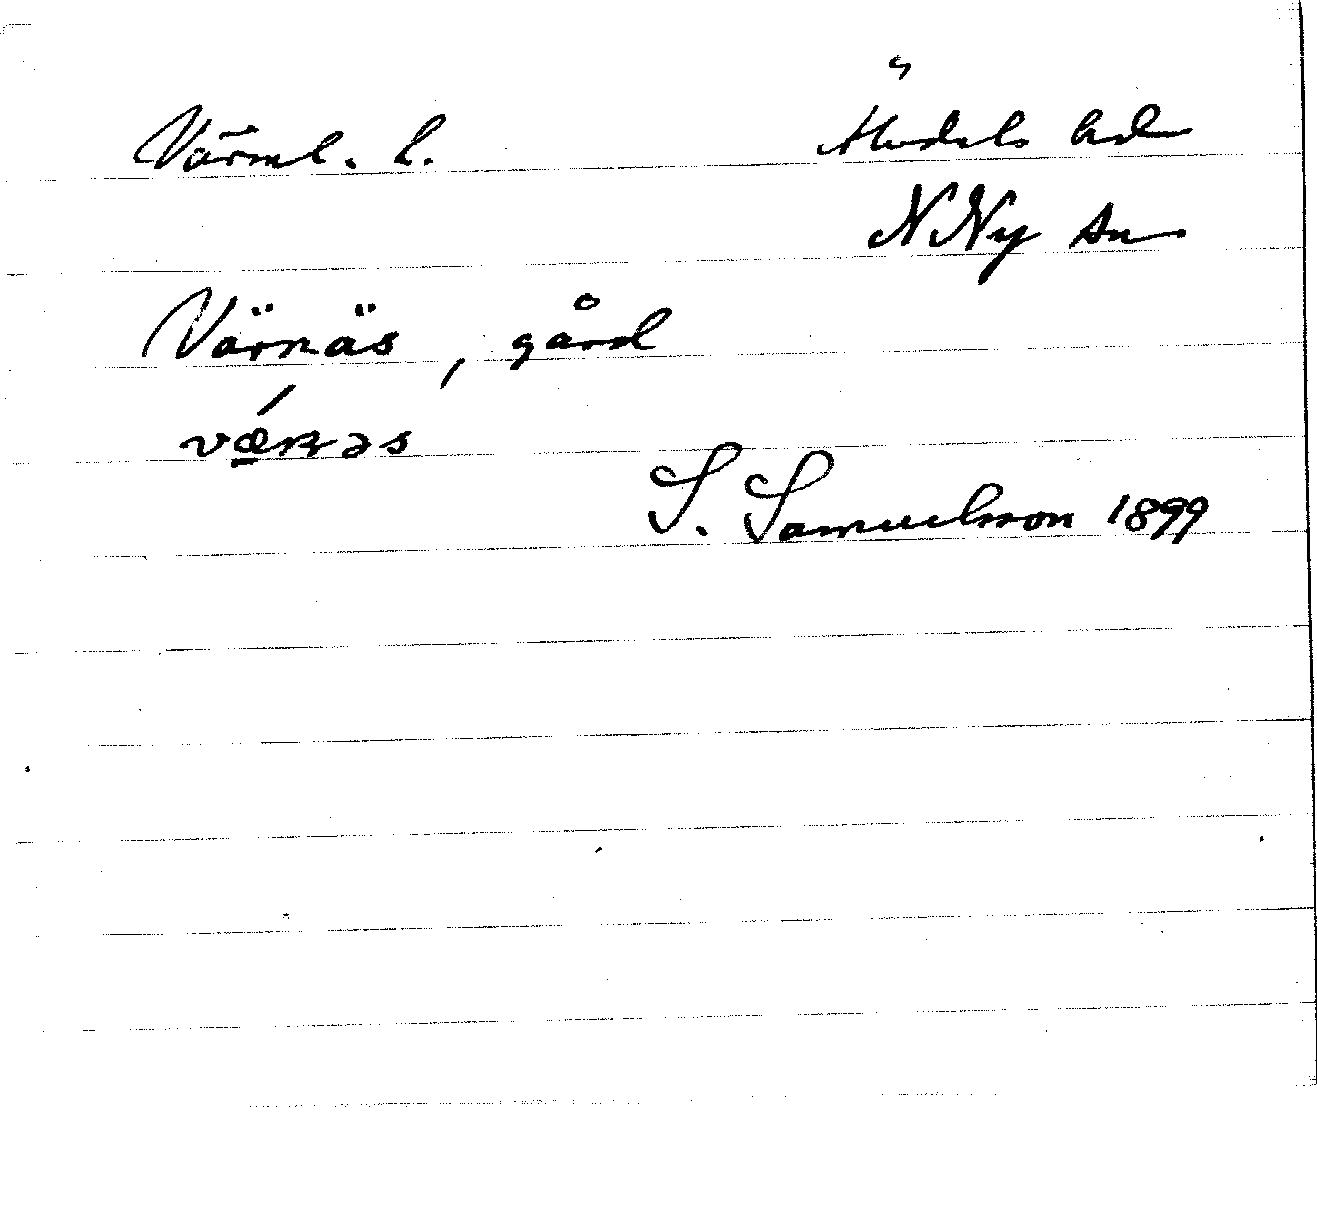 Värml. l. Älvdals hd
N Ny sn
Värnäs, gård
vǽ̱ɳəs
S. Samuelsson 1899